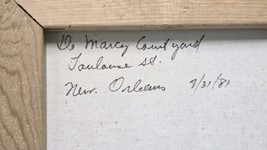 De Marcy Courtyard
Toulouse st.
New. Orleans 9/31/81